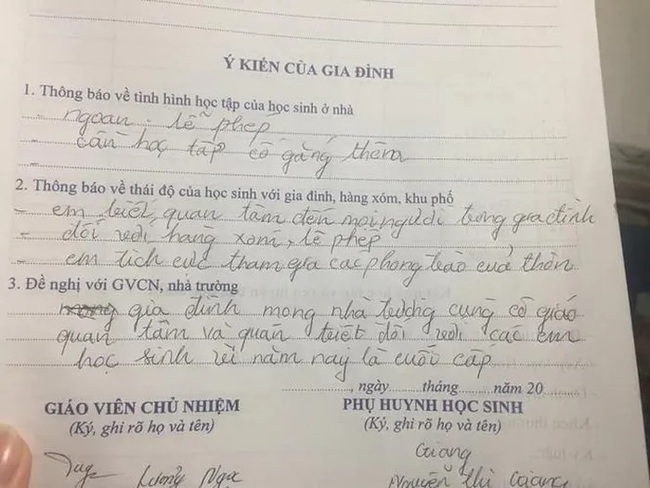 Ý KIẾN CỦA GIA ĐÌNH
1. Thông báo về tình hình học tập của học sinh ở nhà
- ngoan. lễ phép
- cần học tập cố gắng thêm
-
2. Thông báo về thái độ của học sinh với gia đình, hàng xóm, khu phố
- em biết quan tâm đến mọi người trong gia đình
- đối với hàng xóm, lễ phép
- em tích cực tham gia các phong trào của thôn
3. Đề nghị với GVCN, nhà trường
gia đình mong nhà trường cùng cô giáo
quan tâm và quán triệt đối với các em
học sinh vì năm nay là cuối cấp
............, ngày........tháng.........năm 20
GIÁO VIÊN CHỦ NHIỆM PHỤ HUYNH HỌC SINH
(Ký, ghi rõ họ và tên) (Ký, ghi rõ họ và tên)
Giang
Lương Ngọc Nguyễn Thị Giang